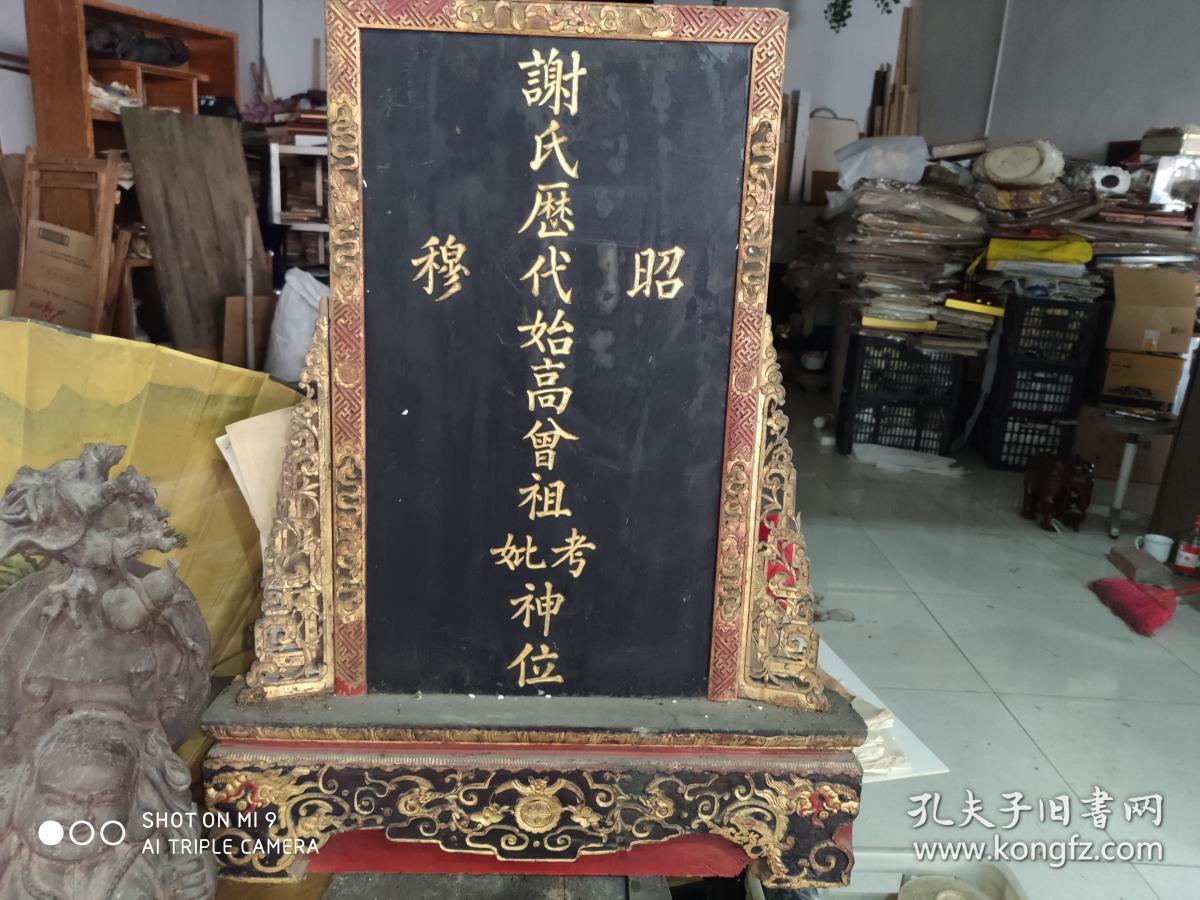 謝氏歷代始高曾祖考妣神位
昭
穆
SHOT ON MI 9
AI TRIPLE CAMERA
孔夫子旧书网
www.kongfz.com